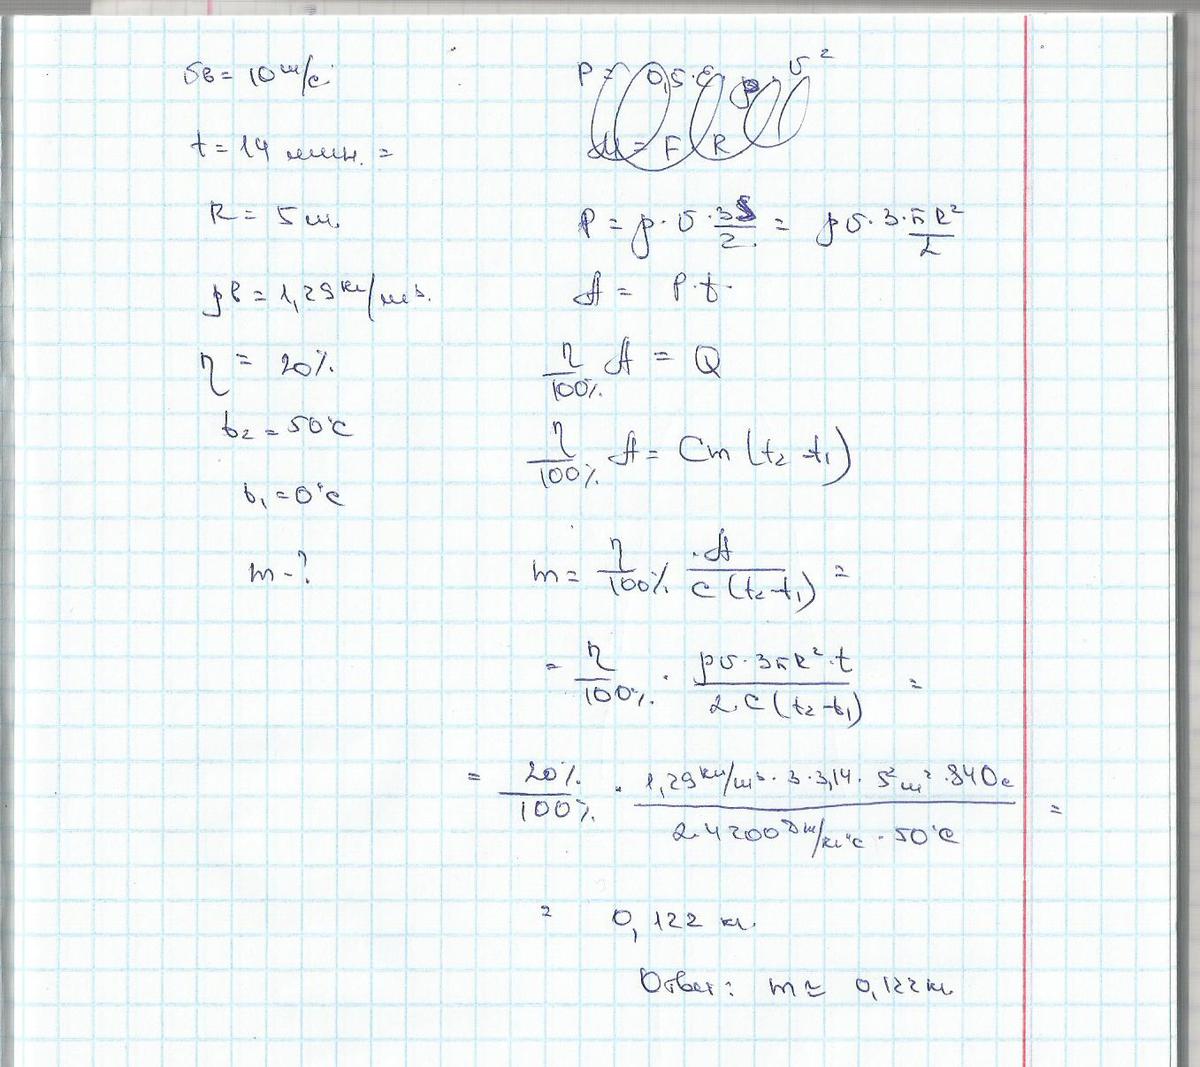 υв = 10 м/с
t = 14 мин. =
R = 5 м.
ρв = 1,29 кг/м³.
η = 20%
t₂ = 50°C
t₁ = 0°C
m - ?
P = 0,5 · ρ · υ²
M = F R
P = ρ · υ · 3S/2 = ρυ · 3 · πR²/2
A = P · t
η/100% A = Q
η/100% A = Cm (t₂ - t₁)
m = η/100% · A/C (t₂ - t₁) =
= η/100% · ρυ · 3πR² · t/2 · C (t₂ - t₁) =
= 20%/100% · 1,29 кг/м³ · 3 · 3,14 · 5² м² · 840с/2 · 4200 Дж/кг°С · 50°С =
= 0,122 кг.
Ответ: m ≈ 0,122 кг.